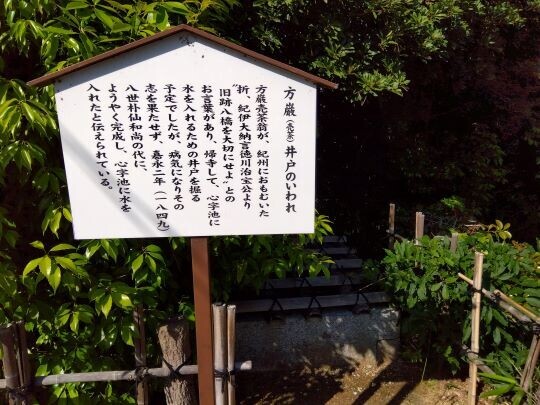 方巌（売茶）井戸のいわれ
方巌売茶翁が、紀州におもむいた
折、紀伊大納言徳川治宝公より
〝旧跡八橋を大切にせよ〟との
お言葉があり、帰寺して、心字池に
水を入れるための井戸を掘る
予定でしたが、病気になりその
志を果たせず、嘉永二年（一八四九）
八世朴仙和尚の代に、
ようやく完成し、心字池に水を
入れたと伝えられている。